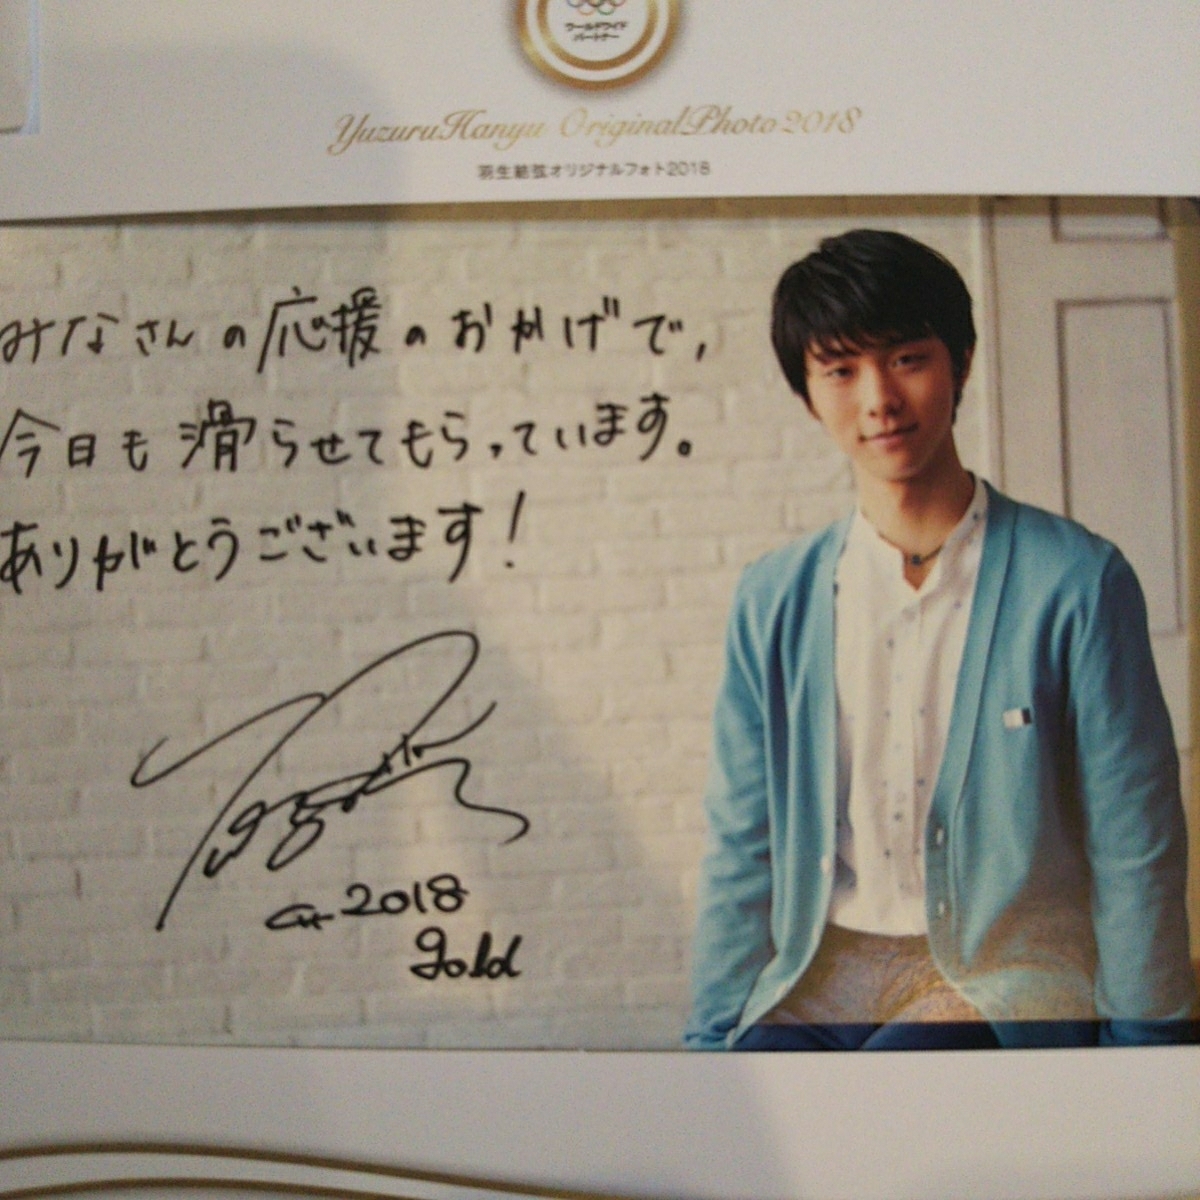 ワールドワイド
パートナー
Yuzuru Hanyu Original Photo 2018
羽生結弦オリジナルフォト2018
みなさんの応援のおかげで,
今日も滑らせてもらっています。
ありがとうございます!
2018
gold